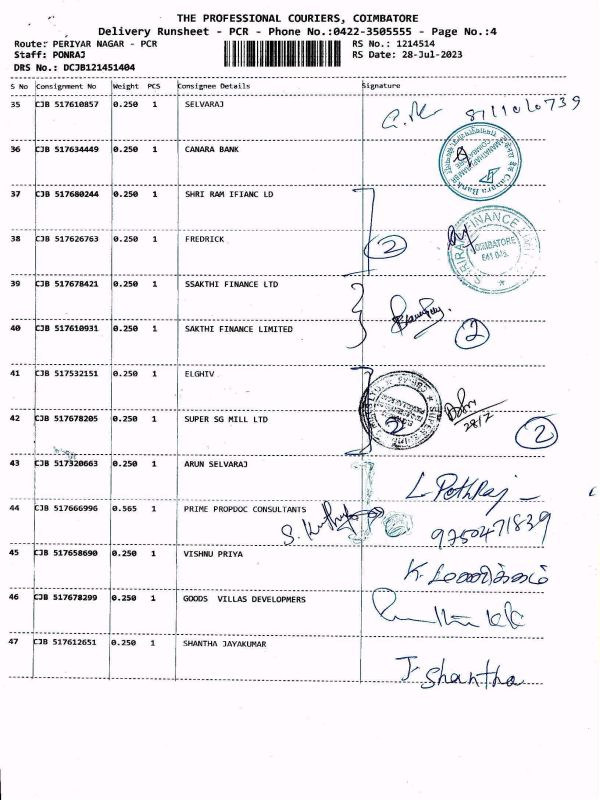 THE PROFESSIONAL COURIERS, COIMBATORE
Delivery Runsheet - PCR - Phone No.:0422-3505555 - Page No.:4
Route: PERIYAR NAGAR - PCR RS No.: 1214514
Staff: PONRAJ RS Date: 28-Jul-2023
DRS No.: DCJB121451404
S No Consignment No Weight PCS Consignee Details Signature
35 CJB 517610857 0.250 1 SELVARAJ
36 CJB 517634449 0.250 1 CANARA BANK
Canara Bank
37 CJB 517680244 0.250 1 SHRI RAM IFIANC LD
38 CJB 517626763 0.250 1 FREDRICK 2
FINANCE
COIMBATORE
39 CJB 517678421 0.250 1 SSAKTHI FINANCE LTD
40 CJB 517610931 0.250 1 SAKTHI FINANCE LIMITED 2
41 CJB 517532151 0.250 1 ELGHIV
42 CJB 517678205 0.250 1 SUPER SG MILL LTD 28/7 2
43 CJB 517320663 0.250 1 ARUN SELVARAJ
L. Pothraj
44 CJB 517666996 0.565 1 PRIME PROPDOC CONSULTANTS
9750471839
45 CJB 517658690 0.250 1 VISHNU PRIYA
46 CJB 517678299 0.250 1 GOODS VILLAS DEVELOPMERS
47 CJB 517612651 0.250 1 SHANTHA JAYAKUMAR
J. Shantha